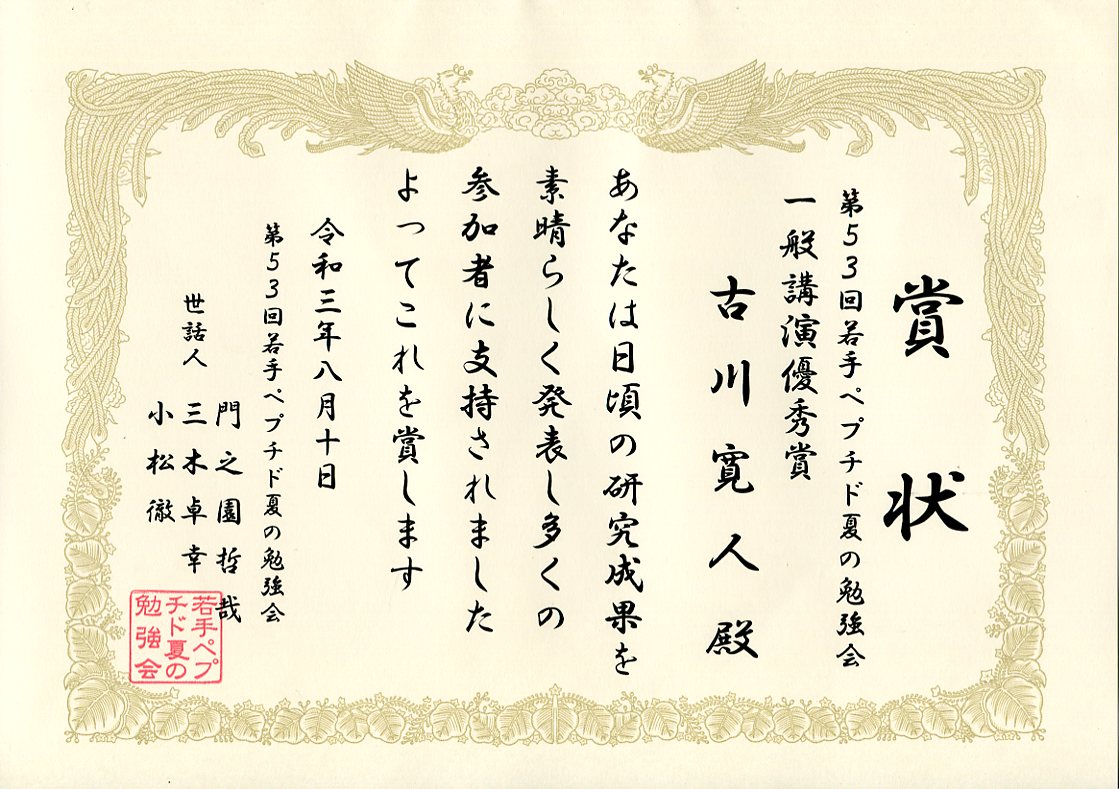 賞状
第53回若手ペプチド夏の勉強会
一般講演優秀賞
古川寛人殿
あなたは日頃の研究成果を
素晴らしく発表し多くの
参加者に支持されました
よってこれを賞します
令和三年八月十日
第53回若手ペプチド夏の勉強会
世話人
門之園哲哉
三木卓幸
小松徹
若手ペプ
チド夏の
勉強会